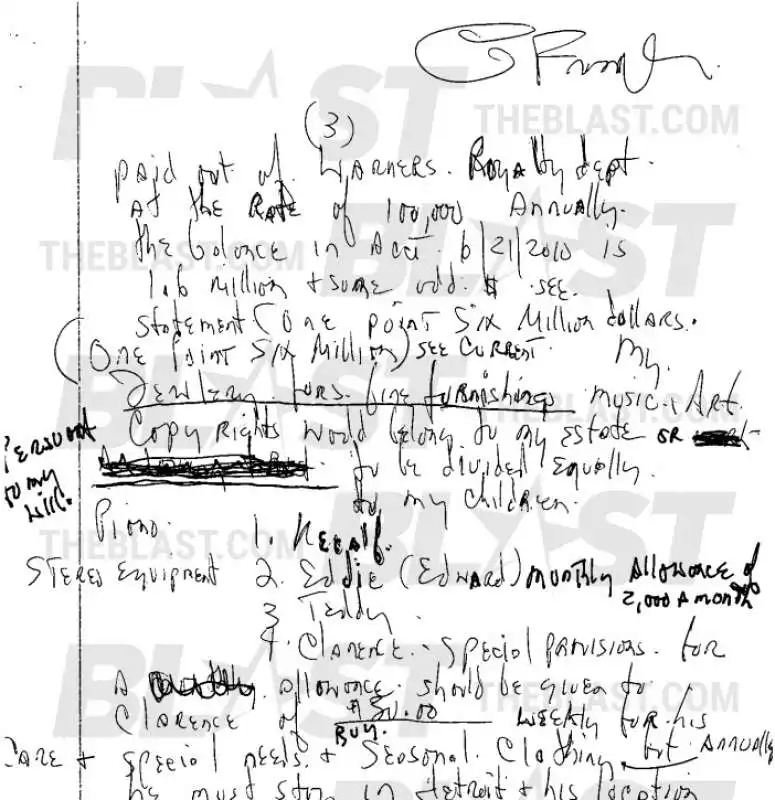 (3)
paid out of. WARNERS. Royalty dept.
At the Rate of 100,000 Annually.
the balance in Acct. 6/21/2010 is
1.6 million + some odd. $ see.
statement (One point Six Million dollars.
(One point Six Million) see Current. My.
Jewlery. furs. fine furnishings music. Art.
Copy Rights would belong to my estate or
to be divided equally.
to my children.
to my
will.
Piano. 1. Kecalf.
Stereo Equipment 2. Eddie (Edward) monthly Allowance of
2,000 A month
3 Teddy.
4. Clarence. - Special provisions. for
A allowance. should be given to
Clarence of weekly for his
Buy.
Care + special needs. + Seasonal. Clothing. Annually
he must stay in detroit + his location
BLAST
THEBLAST.COM
THEBLAST.COM
BLAST
BLAST
THEBLAST.COM
THEBLAST.COM
BLAST
BLAST
THEBLAST.COM
THEBLAST.COM
BLAST